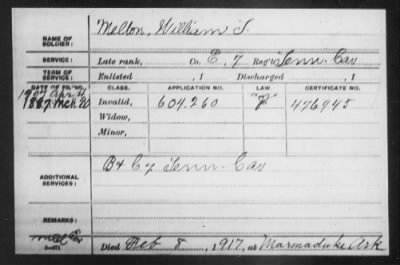 NAME OF SOLDIER: Melton, William S.
SERVICE: Late rank, Co. E, 7 Reg't Tenn. Cav
TERM OF SERVICE: Enlisted , 1 Discharged , 1
DATE OF FILING. CLASS. APPLICATION NO. LAW CERTIFICATE NO.
1887 Mch 20 Invalid, 604.260 476945
Widow,
Minor,
ADDITIONAL SERVICES: B & C 7 Tenn. Cav
REMARKS:
Died Feb 8, 1917, at Marmaduke Ark